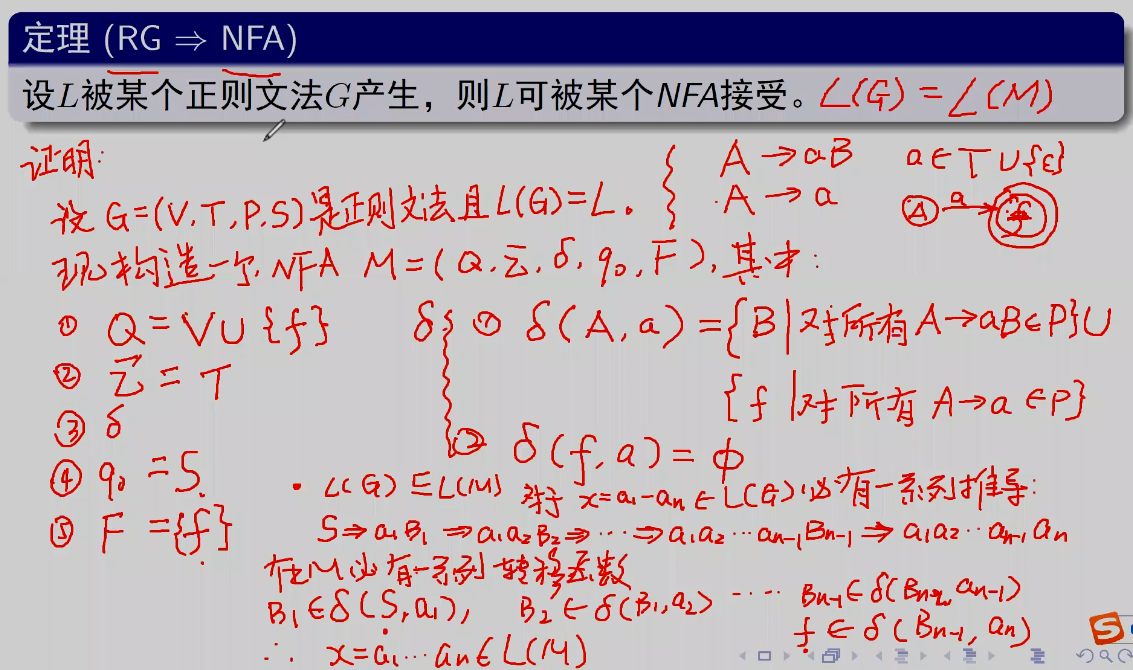 定理 (RG ⇒ NFA)
设L被某个正则文法G产生，则L可被某个NFA接受。 L(G) = L(M)
证明:
A → aB a∈T∪{ε}
A → a
A a f
设 G=(V,T,P,S)是正则文法且L(G)=L。
现构造一个NFA M=(Q,Σ,δ,q₀,F),其中:
① Q = V∪{f}
② Σ = T
③ δ
④ q₀ = S.
⑤ F = {f}.
δ { ① δ(A,a) = {B|对所有A→aB∈P}∪
{f|对所有 A→a∈P}
② δ(f,a) = ϕ
· L(G)⊆L(M) 对于 x=a₁–aₙ∈L(G),必有一系列推导:
S⇒a₁B₁ ⇒a₁a₂B₂⇒ ··· ⇒a₁a₂···aₙ₋₁Bₙ₋₁ ⇒ a₁a₂···aₙ₋₁aₙ
在M必有一系列转移函数
B₁∈δ(S,a₁), B₂∈δ(B₁,a₂) ···· Bₙ₋₁∈δ(Bₙ₋₂,aₙ₋₁)
f∈δ(Bₙ₋₁,aₙ)
∴ x=a₁···aₙ∈L(M)